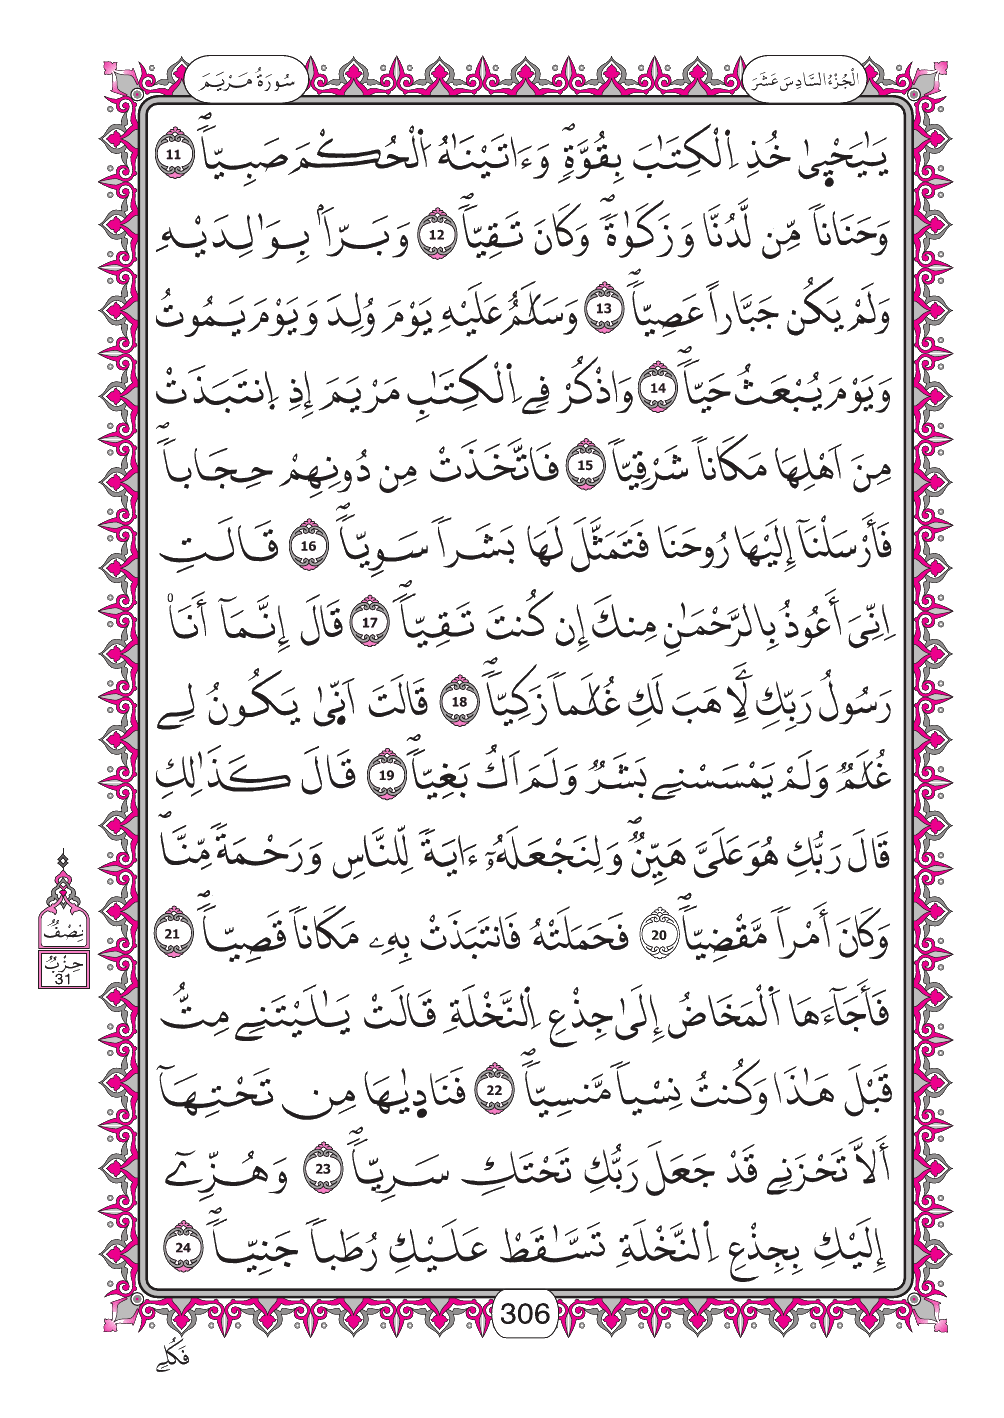 سُورَةُ مَرْيَمَ
اَلْجُزْءُ السَّادِسَ عَشَرَ
يَٰيَحْيٜىٰ خُذِ اِ۬لْكِتَٰبَ بِقُوَّةٖۖ وَءَاتَيْنَٰهُ اُ۬لْحُكْمَ صَبِيّاٗۖ 11
وَحَنَاناٗ مِّن لَّدُنَّا وَزَكَوٰةٗۖ وَكَانَ تَقِيّاٗۖ 12 وَبَرّاَۢ بِوَٰلِدَيْهِ
وَلَمْ يَكُن جَبَّاراً عَصِيّاٗۖ 13 وَسَلَٰمٌ عَلَيْهِ يَوْمَ وُلِدَ وَيَوْمَ يَمُوتُ
وَيَوْمَ يُبْعَثُ حَيّاٗۖ 14 وَاذْكُرْ فِے اِ۬لْكِتَٰبِ مَرْيَمَ إِذِ اِ۪نتَبَذَتْ
مِنَ اَهْلِهَا مَكَاناٗ شَرْقِيّاٗ 15 فَاتَّخَذَتْ مِن دُونِهِمْ حِجَاباٗۖ
فَأَرْسَلْنَآ إِلَيْهَا رُوحَنَا فَتَمَثَّلَ لَهَا بَشَراٗ سَوِيّاٗۖ 16 قَالَتِ
اِنِّيَ أَعُوذُ بِالرَّحْمَٰنِ مِنكَ إِن كُنتَ تَقِيّاٗۖ 17 قَالَ إِنَّمَآ أَنَا۠
رَسُولُ رَبِّكِ لِأَهَبَ لَكِ غُلَٰماٗ زَكِيّاٗۖ 18 قَالَتَ اَنّٜىٰ يَكُونُ لِے
غُلَٰمٞ وَلَمْ يَمْسَسْنِے بَشَرٞ وَلَمَ اَكُ بَغِيّاٗۖ 19 قَالَ كَذَٰلِكِ
قَالَ رَبُّكِ هُوَ عَلَيَّ هَيِّنٞۖ وَلِنَجْعَلَهُۥٓ ءَايَةٗ لِّلنَّاسِ وَرَحْمَةٗ مِّنَّاۖ
وَكَانَ أَمْراٗ مَّقْضِيّاٗۖ 20 فَحَمَلَتْهُ فَانتَبَذَتْ بِهِۦ مَكَاناٗ قَصِيّاٗۖ 21
فَأَجَآءَهَا اَ۬لْمَخَاضُ إِلَىٰ جِذْعِ اِ۬لنَّخْلَةِ قَالَتْ يَٰلَيْتَنِے مِتُّ
قَبْلَ هَٰذَا وَكُنتُ نِسْياٗ مَّنسِيّاٗۖ 22 فَنَادٜىٰهَا مِن تَحْتِهَآ
أَلاَّ تَحْزَنِے قَدْ جَعَلَ رَبُّكِ تَحْتَكِ سَرِيّاٗۖ 23 وَهُزِّےٓ
إِلَيْكِ بِجِذْعِ اِ۬لنَّخْلَةِ تَسَّٰقَطْ عَلَيْكِ رُطَباٗ جَنِيّاٗۖ 24
نِصْفُ
حِزْبُ
31
306
فَكُلِے